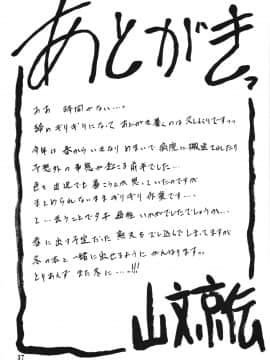 あとがきっ
ああ 時間がない…。
締めギリギリになって あとがき書くのは 久しぶりですっっ
今年は 春から いきなり めまいで 病院に 搬送されたり
予想外の事態が起こる前半でした…
色々 出逢でも 書こうとか思っていたのですが
まとめられないまま ギリギリ 作業です…
と…言うことで 夕子 陥落 いかがでしたでしょうか…
春に出す予定だった 無天を ずい込んでしまってますが
冬の本と一緒に出せるように がんばります。
とりあえず また 冬に…っ!!
山文京伝
37